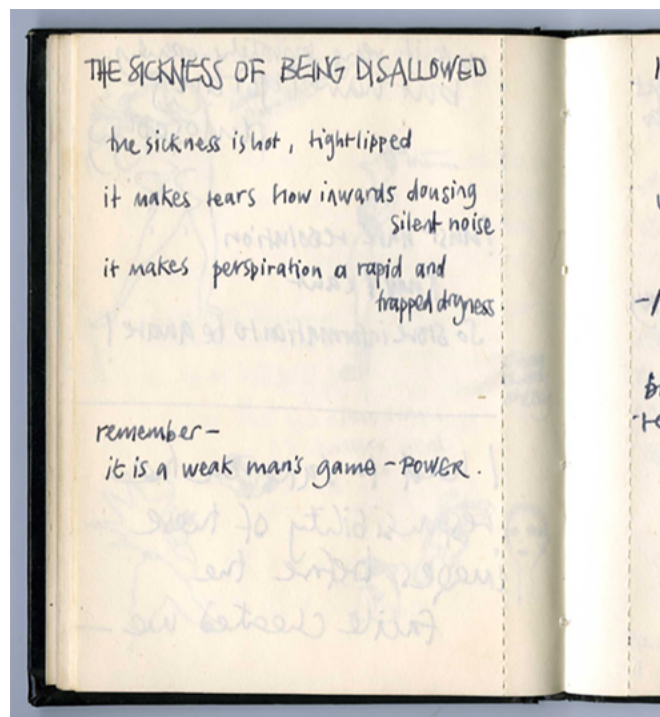 THE SICKNESS OF BEING DISALLOWED
the sickness is hot, tightlipped
it makes tears flow inwards dousing
silent noise
it makes perspiration a rapid and
trapped dryness
remember –
it is a weak man's game – POWER.